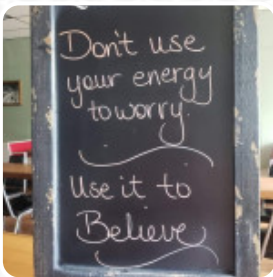 Don't use
your energy
to worry.
Use it to
Believe